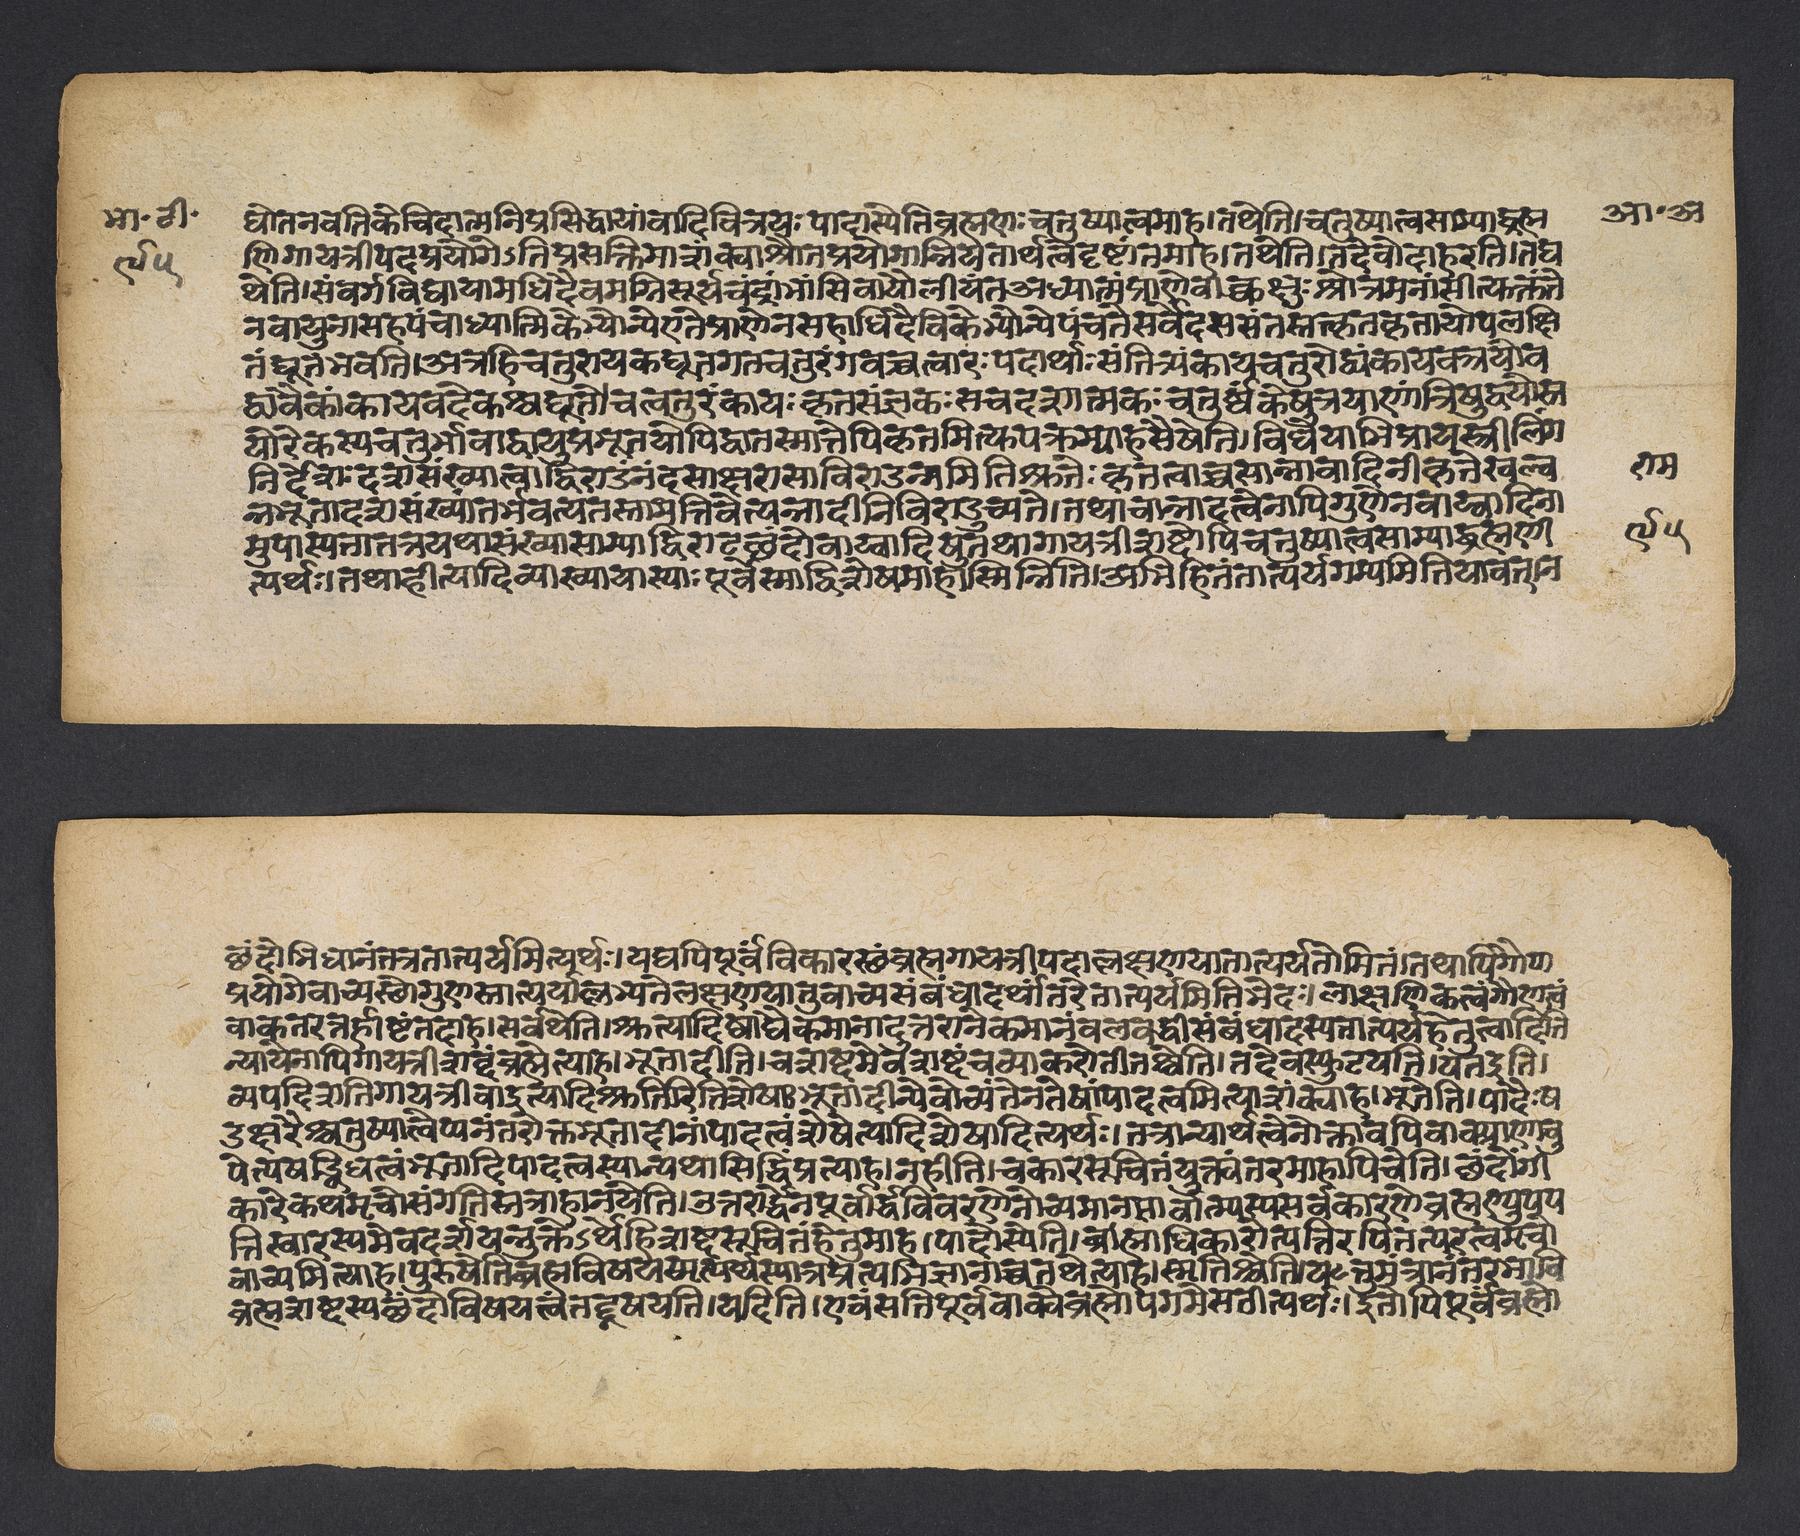 भा॰टी॰
९५
आ॰अ
द्योतनवतिकेचिदात्मनिप्रसिद्धायांवादिवित्रयः पादास्येतिब्रह्मणः चतुष्पात्त्वमाह।तथेति।चतुष्पात्त्वसाम्याद्ब्रह्म
णिगायत्रीपदप्रयोगेऽतिप्रसक्तिमाशंक्याश्रौतप्रयोगान्नियेतार्थत्वेदृष्टांतमाह।तथेति।तदेवोदाहरति।तद्य
थेति।संवर्गविद्यायामधिदैवमग्निसूर्यचंद्रांभांसिवायौलीयंतेअध्यात्मंप्राणेवाक्चक्षुः श्रोत्रमनांसीत्युक्तंते
नवायुनासहपंचाध्यात्मिकेभ्योन्येएतेप्राणेनसहाधिदैविकेभ्योन्येपंचतेसर्वेदससंतस्तत्कृतंकृतायोपलक्षि
तंद्यूतंभवति।अत्रहिचतुरायकद्यूतगतचतुरंगवच्चत्वारः पदार्थाः संतित्र्यंकायचतुरोद्व्यंकायवत्रयोव
द्वावेकांकायवदेकश्चद्यूते।चत्वतुरंकायः कृतसंज्ञकः सचदशात्मकः चतुर्ष्वंकेषुत्रयाणांत्रिषुद्वयोस्त
योरेकस्यचतुर्भावाद्वायुप्रभृतयोपिद्वातस्मात्तेपिकृतमित्युपक्रम्याहसैषेति। विधेयाभिप्रायस्त्रीलिंग
निर्देशः दशसंख्यात्वाद्विराडंनंदसाक्षरासाविराडन्नमितिश्रुतेः कृतत्वाच्चसान्नावादिनीकृतेखल्व
न्नभूतादशसंख्यांतर्भवत्यतस्तामत्तिवेत्यन्नादीनिविराडुच्यते।तथाचान्नादत्वेनापिगुणेनवाय्वादिना
मुपास्यत्तातत्रयथासंख्यासाम्याद्विराट्छंदोवाय्वादिषुतथागायत्रीशब्दोपिचतुष्पात्त्वसाम्याद्ब्रह्मणी
त्यर्थः।तथाहीत्यादिव्याख्यायास्याः पूर्वस्माद्विशेषमाहास्मिन्निति।अभिहितंतात्पर्यगम्यमितियावत्।न
राम
९५
छंदोभिधानंतत्रतात्पर्यमित्यर्थः।यद्यपिपूर्वंविकारस्थंब्रह्मगायत्रीपदालक्षणयातात्पर्यतोमितं।तथापिगौण
प्रयोगेवाच्यस्थोगुणस्तात्पर्याल्लभ्यतेलक्षणयातुवाच्यसंबंधादर्थांतरेतात्पर्यमितिभेदः।लाक्षणिकत्वंगौणत्वं
वाकुतरत्रर्हाष्टंतदाह।सर्वथेति।श्रुत्यादिषाद्येकमानादुत्तरानेकमानंबलवद्धीसंबंधादस्यत्तात्पर्यहेतुत्वादिति
न्यायेनापिगायत्रीशब्दंब्रह्मेत्याह।भूतादीति।चशब्दमेवंशब्दंचव्याकरोतीतश्चेति।तदेवस्फुटयति।यतइति।
व्यपदिशतिगायत्रीवाइत्यादिश्रुतिरितिशेषः।भूतादीन्येवोच्यंतेनतेषांपादत्वमित्याशंक्याह।भूतेति। पादैःष
डक्षरैश्चतुष्पात्त्वेप्यनंतरोक्तभूतादीनांपादत्वंशेषेत्यादिशेषादित्यर्थः।तत्रान्यार्थत्वेनोक्तावपिवाक्प्राणावु
पेत्यषड्विधत्वंभूतादिपादत्वस्यान्यथासिद्धिंप्रत्याह।नहीति।चकारसूचितंयुक्त्यंतरमाहापिचेति।छंदोंगी
कारेकथंमृचोसंगतिस्तत्राहानयेति।उत्तरार्द्धेनपूर्वार्द्धविवरणेनोच्यमानसार्वात्म्यस्यसर्वकारणेब्रह्मण्युपप
त्तिस्वारस्यमेवदर्शयन्नुक्तेऽर्थेहिशब्दसूचितंहेतुमाह।पादोस्येति।ब्राह्माधिकारोत्पत्तिरपितत्परत्वमृचो
वाच्यमित्याह।पुरुषेतिब्रह्मविषयस्मृत्यर्थस्यात्रप्रत्यभिज्ञानाच्चतथेत्याह।स्मृतिश्चेति।यत्तुमंत्रानंतरभावि
ब्रह्मशब्दस्यछंदोविषयत्वंतद्दूषयति।यदिति।एवंसतिपूर्ववाक्येब्रह्मोपगमेसतीत्यर्थः।इतोपिपूर्वंब्रह्मो